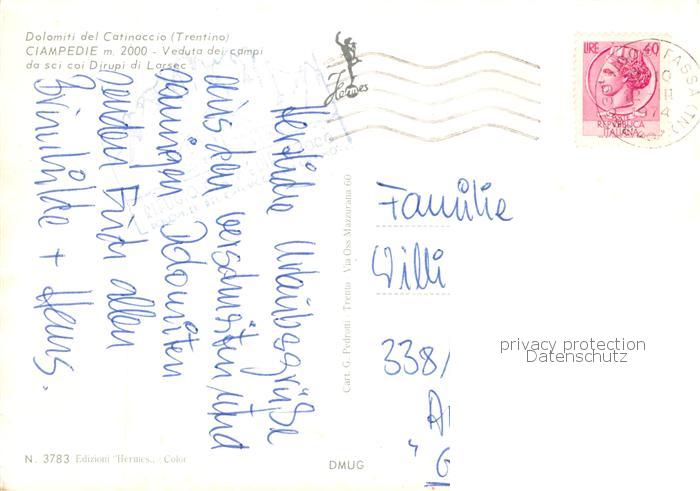 Dolomiti del Catinaccio (Trentino)
CIAMPEDIE m. 2000 - Veduta dei campi
da sci coi Dirupi di Larsec
Hermes
LIRE 40
POSTE
REPUBBLICA
ITALIANA
FASSA (TN)
Herzliche Urlaubsgrüße
aus den verschneiten und
sonnigen Dolomiten
senden Euch allen
Brunhilde + Hans.
Cart. G. Pedrotti Trento Via Oss Mazzurana 60
Familie
Willi
338/
privacy protection
Datenschutz
" G
N. 3783 Edizioni "Hermes" - Color
DMUG